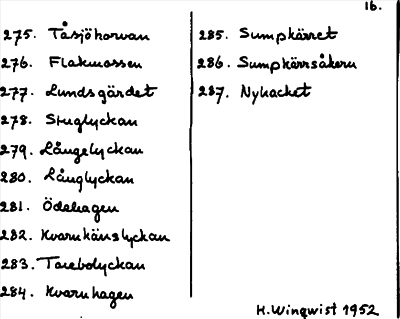 16.
275. Tåsjöhorvan
276. Flakmossen
277. Lundsgärdet
278. Stuglyckan
279. Långelyckan
280. Långlyckan
281. Ödehagen
282. Kvarnkänslyckan
283. Tarebolyckan
284. Kvarnhagen
285. Sumpkärret
286. Sumpkärrsåkern
287. Nyhacket
H. Winqwist 1952